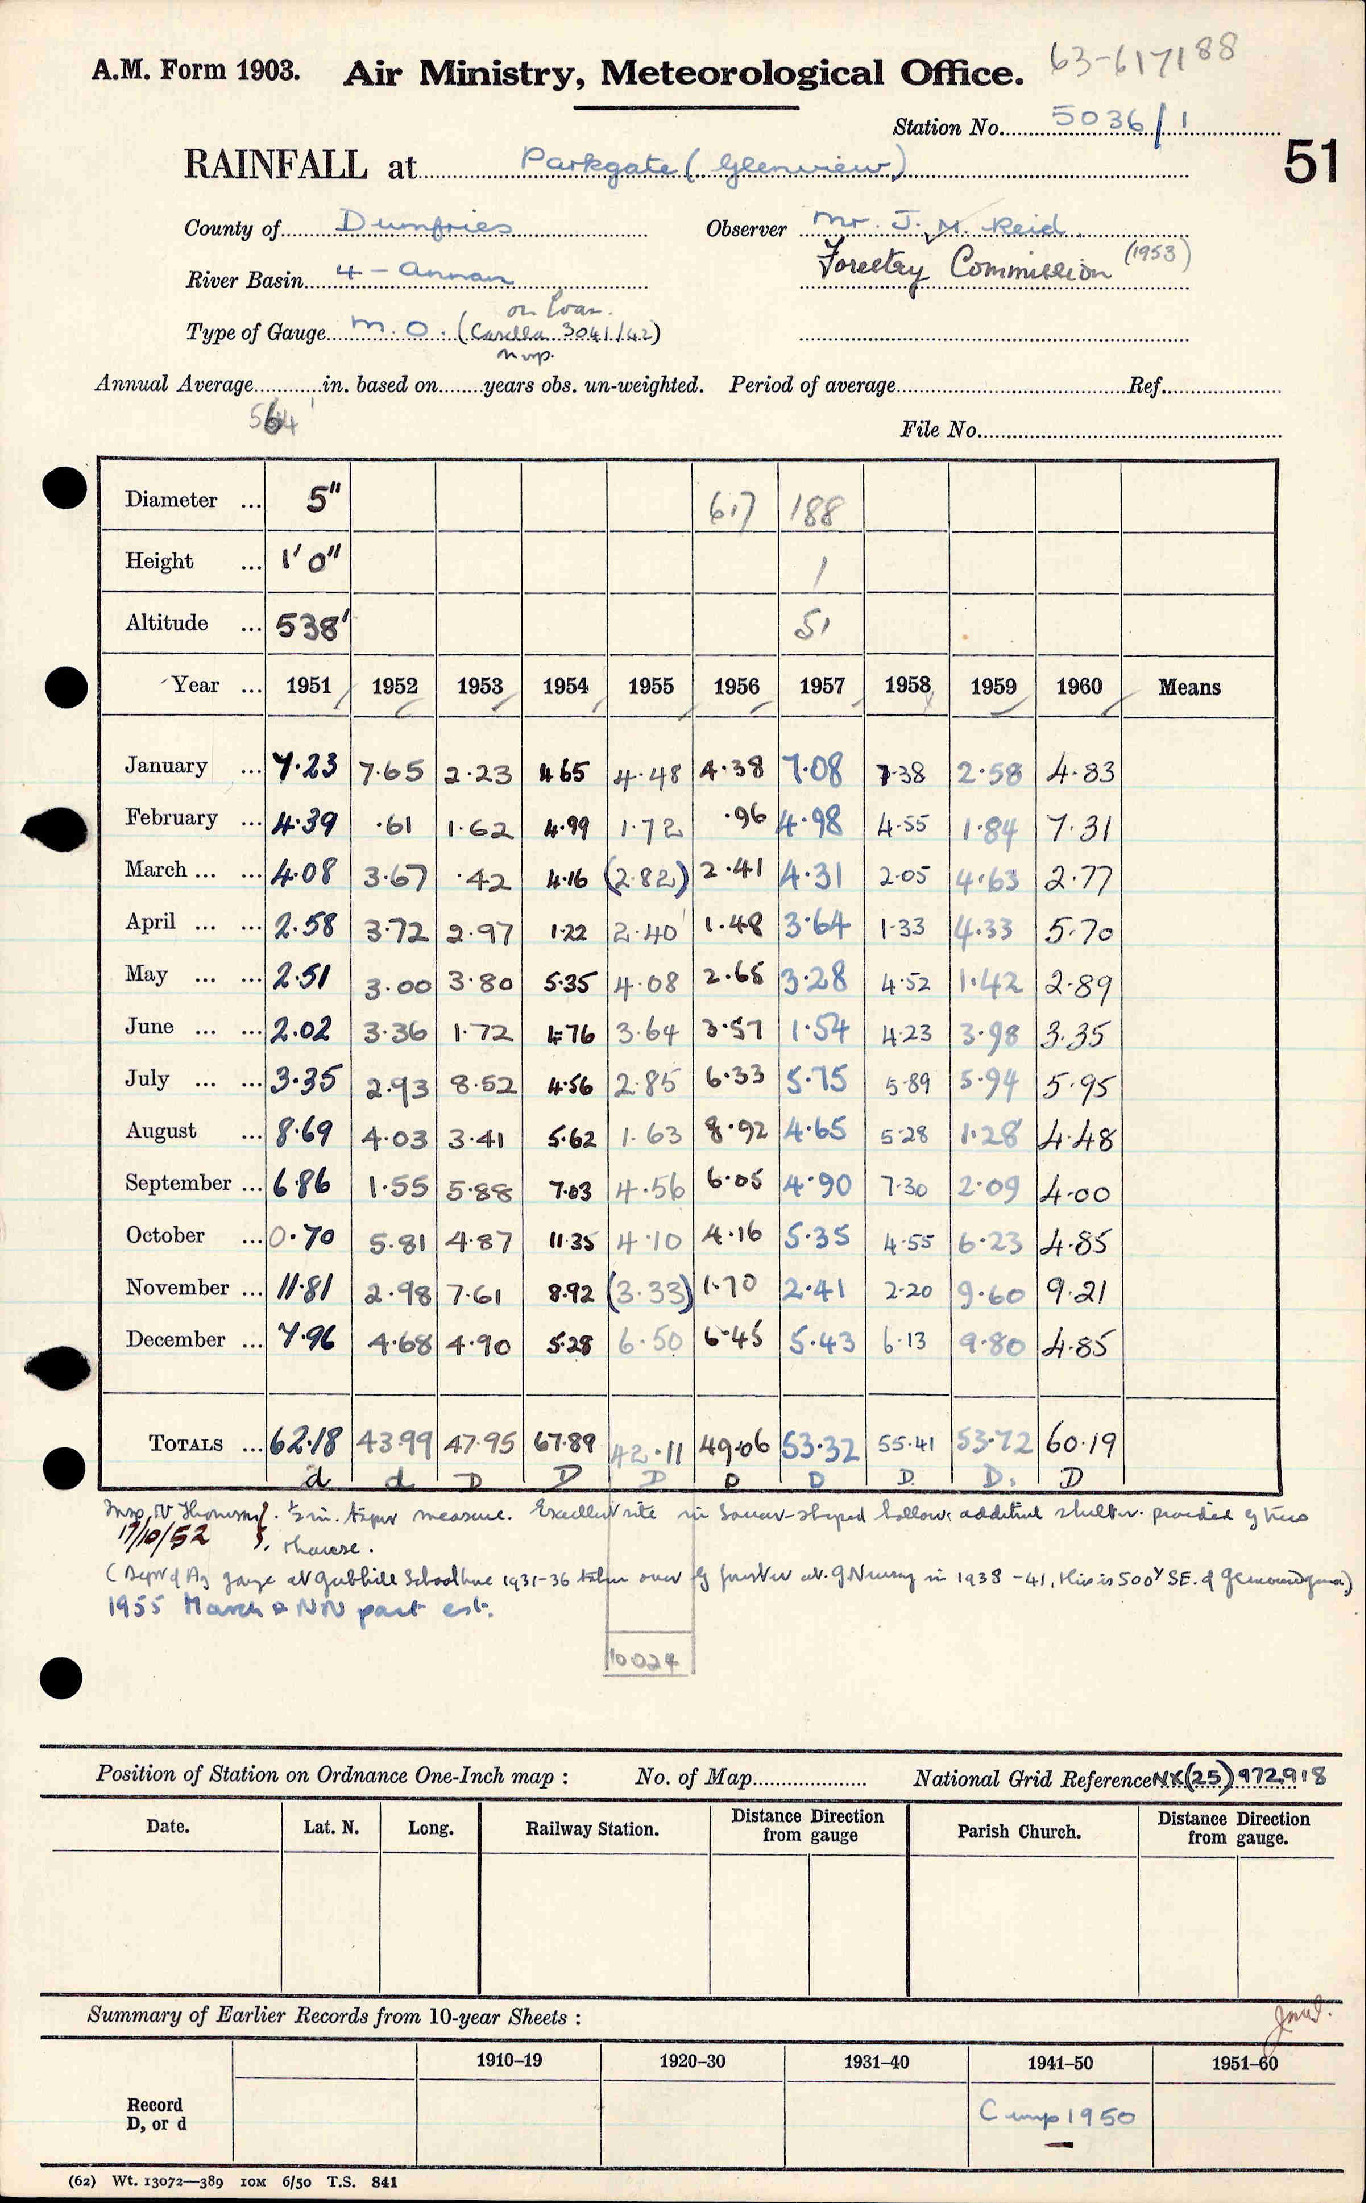 63-617188
A.M. Form 1903. Air Ministry, Meteorological Office.
Station No. 5036/1
51
RAINFALL at Parkgate (Glenview)
County of Dumfries Observer Mr. J. M. Reid
Forestry Commission (1953)
River Basin 4 - Annan
on loan.
Type of Gauge M.O. (Casella 3041/42)
Annual Average in. based on years obs. un-weighted. Period of average Ref.
File No.
Diameter ... 5" 617 188
Height ... 1' 0" 1
Altitude ... 538' 51
Year ... 1951 1952 1953 1954 1955 1956 1957 1958 1959 1960 Means
January ... 7.23 7.65 2.23 4.65 4.48 4.38 7.08 7.38 2.58 4.83
February ... 4.39 .61 1.62 4.99 1.72 .96 4.98 4.55 1.84 7.31
March ... ... 4.08 3.67 .42 4.16 (2.82) 2.41 4.31 2.05 4.63 2.77
April ... ... 2.58 3.72 2.97 1.22 2.40 1.48 3.64 1.33 4.33 5.70
May ... ... 2.51 3.00 3.80 5.35 4.08 2.65 3.28 4.52 1.42 2.89
June ... ... 2.02 3.36 1.72 4.76 3.64 3.57 1.54 4.23 3.98 3.35
July ... ... 3.35 2.93 8.52 4.56 2.85 6.33 5.75 5.89 5.94 5.95
August ... 8.69 4.03 3.41 5.62 1.63 8.92 4.65 5.28 1.28 4.48
September ... 6.86 1.55 5.88 7.03 4.56 6.05 4.90 7.30 2.09 4.00
October ... 0.70 5.81 4.87 11.35 4.10 4.16 5.35 4.55 6.23 4.85
November ... 11.81 2.98 7.61 8.92 (3.33) 1.70 2.41 2.20 9.60 9.21
December ... 7.96 4.68 4.90 5.28 6.50 6.45 5.43 6.13 9.80 4.85
TOTALS ... 62.18 43.99 47.95 67.89 42.11 49.06 53.32 55.41 53.72 60.19
d d D D D D D D. D. D
Insp. ½ in. taper measure. Excellent site in saucer-shaped hollow, additnl shelter provided by trees
17/10/52 & house.
(Dept of Ag gauge at Gubhill Schoolhouse 1931-36 taken over by forester at in 1938-41, this is 500y SE. of
1955 March & Nov part est.
10024
Position of Station on Ordnance One-Inch map : No. of Map National Grid Reference NX(25) 972918
Date. Lat. N. Long. Railway Station. Distance Direction from gauge Parish Church. Distance Direction from gauge.
Summary of Earlier Records from 10-year Sheets :
1910–19 1920–30 1931–40 1941–50 1951–60
Record
D, or d
1950
(62) Wt. 13072—389 10M 6/50 T.S. 841